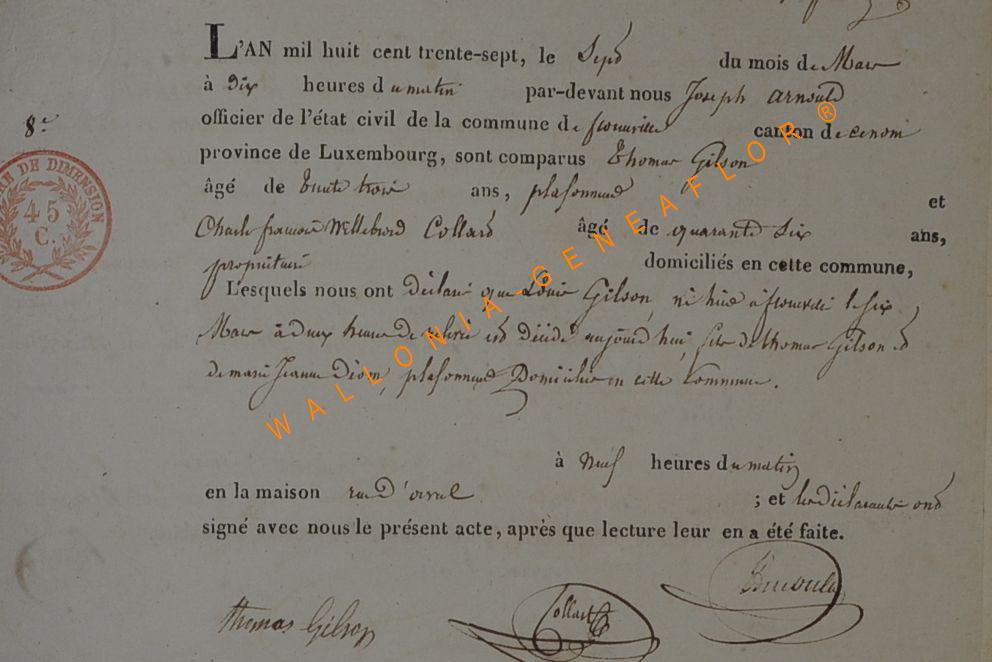 8.e
TIMBRE DE DIMENSION
45
C.
L'AN mil huit cent trente-sept, le Sept du mois de Mars
à dix heures du matin par-devant nous Joseph Arnould
officier de l'état civil de la commune de florenville canton de
province de Luxembourg, sont comparus Thomas Gilson
âgé de trente trois ans, plafonneur et
Charle françois Willebrord Collard âgé de quarante six ans,
propriétaire domiciliés en cette commune,
Lesquels nous ont déclaré que Louis Gilson, né à le six
Mars à deux heures de relevé est décédé aujourd'hui, fils de thomas Gilson et
de marie Jeanne Dion, plafonneur Domiciliés en cette Commune.
à neuf heures du matin
en la maison rue D'orval ; et les déclarants ont
signé avec nous le présent acte, après que lecture leur en a été faite.
thomas Gilson Collard Arnould
WALLONIA-GENEAFLOR ®